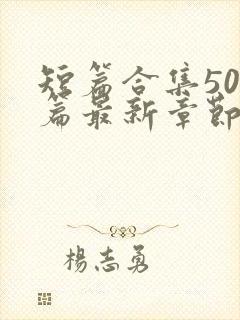 短篇合集50
篇最新章節
楊志勇